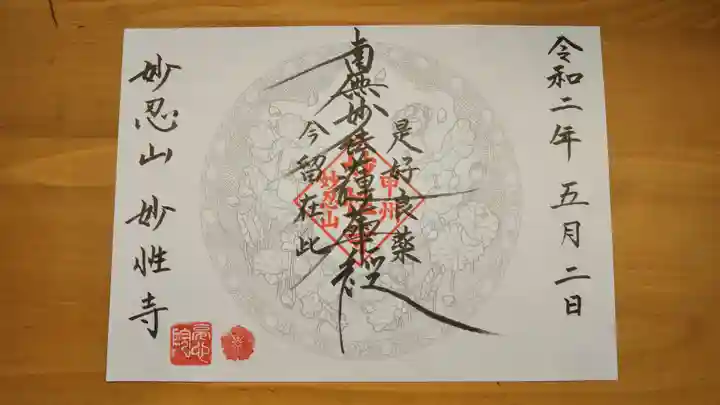 令和二年 五月二日
是好良薬
南無妙法蓮華経
今留在此
妙忍山 妙性寺
甲州
妙忍山